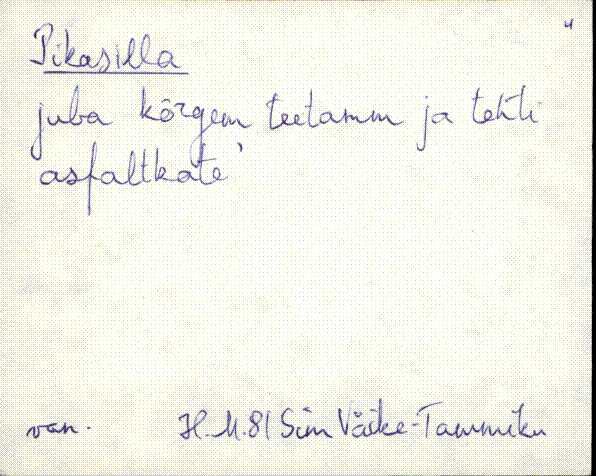 4
Pikasilla
juba kõrgem teetamm ja tehti
asfaltkate'
van. H.M.81 Sim Väike-Tammiku